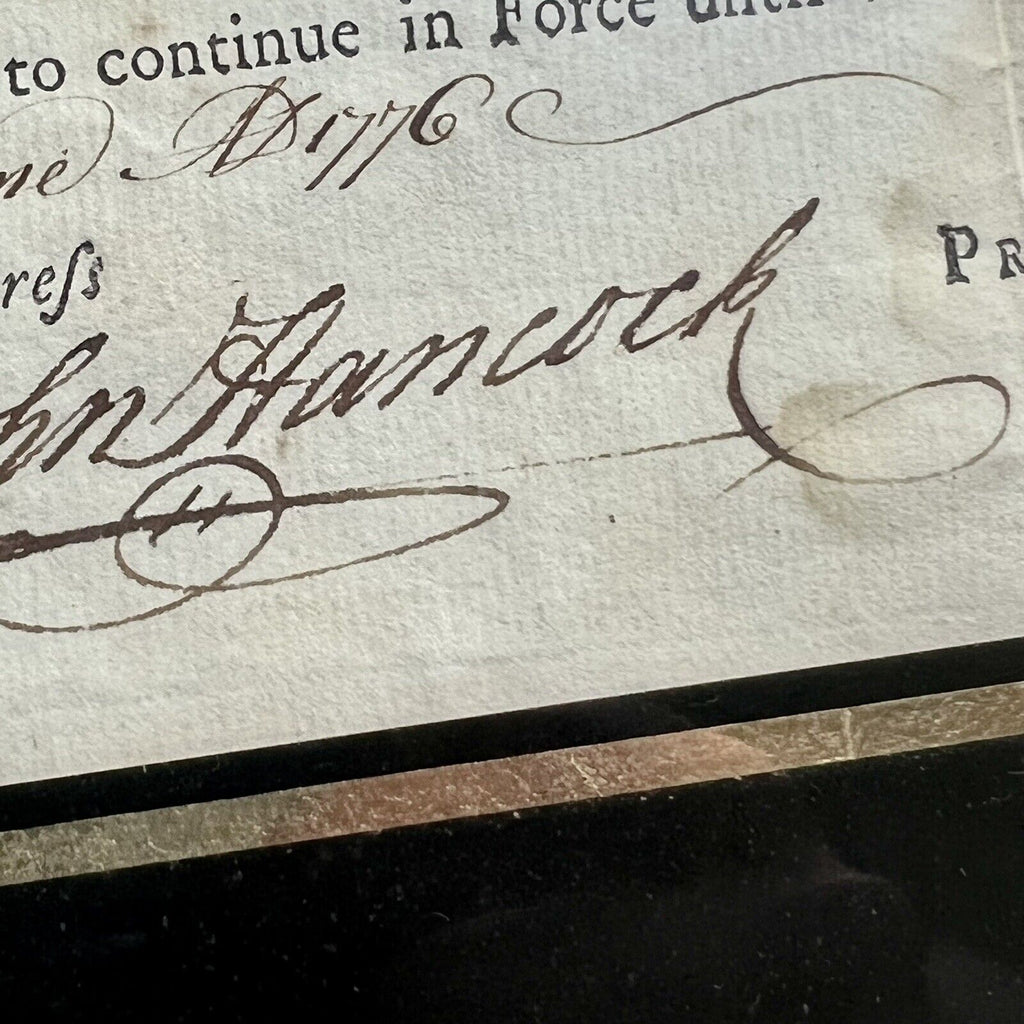 to continue in Force until
me AD 1776
reſs
hn Hancock PR